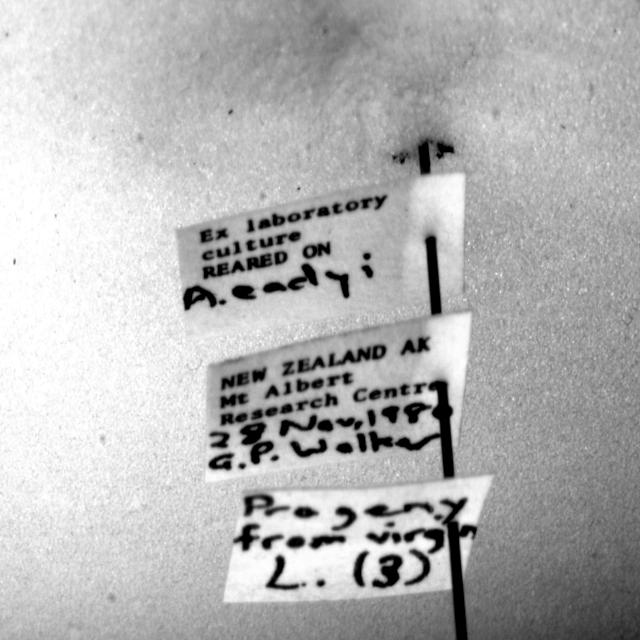 Ex laboratory
culture
REARED ON
A. eadyi
NEW ZEALAND AK
Mt Albert
Research Centre
28 Nov, 198
G.P. Walker
Progeny
from virgin
L. (3)